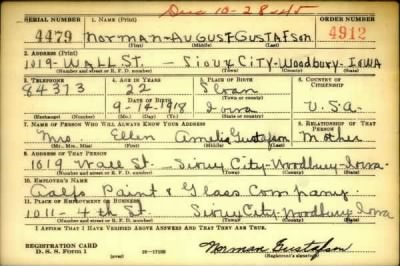 Dec 10-28
SERIAL NUMBER 1. NAME (Print) ORDER NUMBER
4479 Norman-August-Gustafson 4912
(First) (Middle) (Last)
2. ADDRESS (Print)
1019-WALL ST. - SIOUX CITY-Woodbury-IOWA
(Number and street or R. F. D. number) (Town) (County) (State)
3. TELEPHONE 4. AGE IN YEARS 5. PLACE OF BIRTH 6. COUNTRY OF CITIZENSHIP
84373 22 Sloan
DATE OF BIRTH (Town or county)
9-14-1918 Iowa U.S.A.
(Exchange) (Number) (Mo.) (Day) (Yr.) (State or country)
7. NAME OF PERSON WHO WILL ALWAYS KNOW YOUR ADDRESS 8. RELATIONSHIP OF THAT PERSON
Mrs Ellen Amelia Gustafson Mother
(Mr., Mrs., Miss) (First) (Middle) (Last)
9. ADDRESS OF THAT PERSON
1019 Wall St. Sioux City-Woodbury-Iowa
(Number and street or R. F. D. number) (Town) (County) (State)
10. EMPLOYER'S NAME
Paint & Glass Company
11. PLACE OF EMPLOYMENT OR BUSINESS
1011-4th St. Sioux City-Woodbury Iowa
(Number and street or R. F. D. number) (Town) (County) (State)
I AFFIRM THAT I HAVE VERIFIED ABOVE ANSWERS AND THAT THEY ARE TRUE.
REGISTRATION CARD
D. S. S. Form 1 (over) 16-17105 Norman Gustafson
(Registrant's signature)